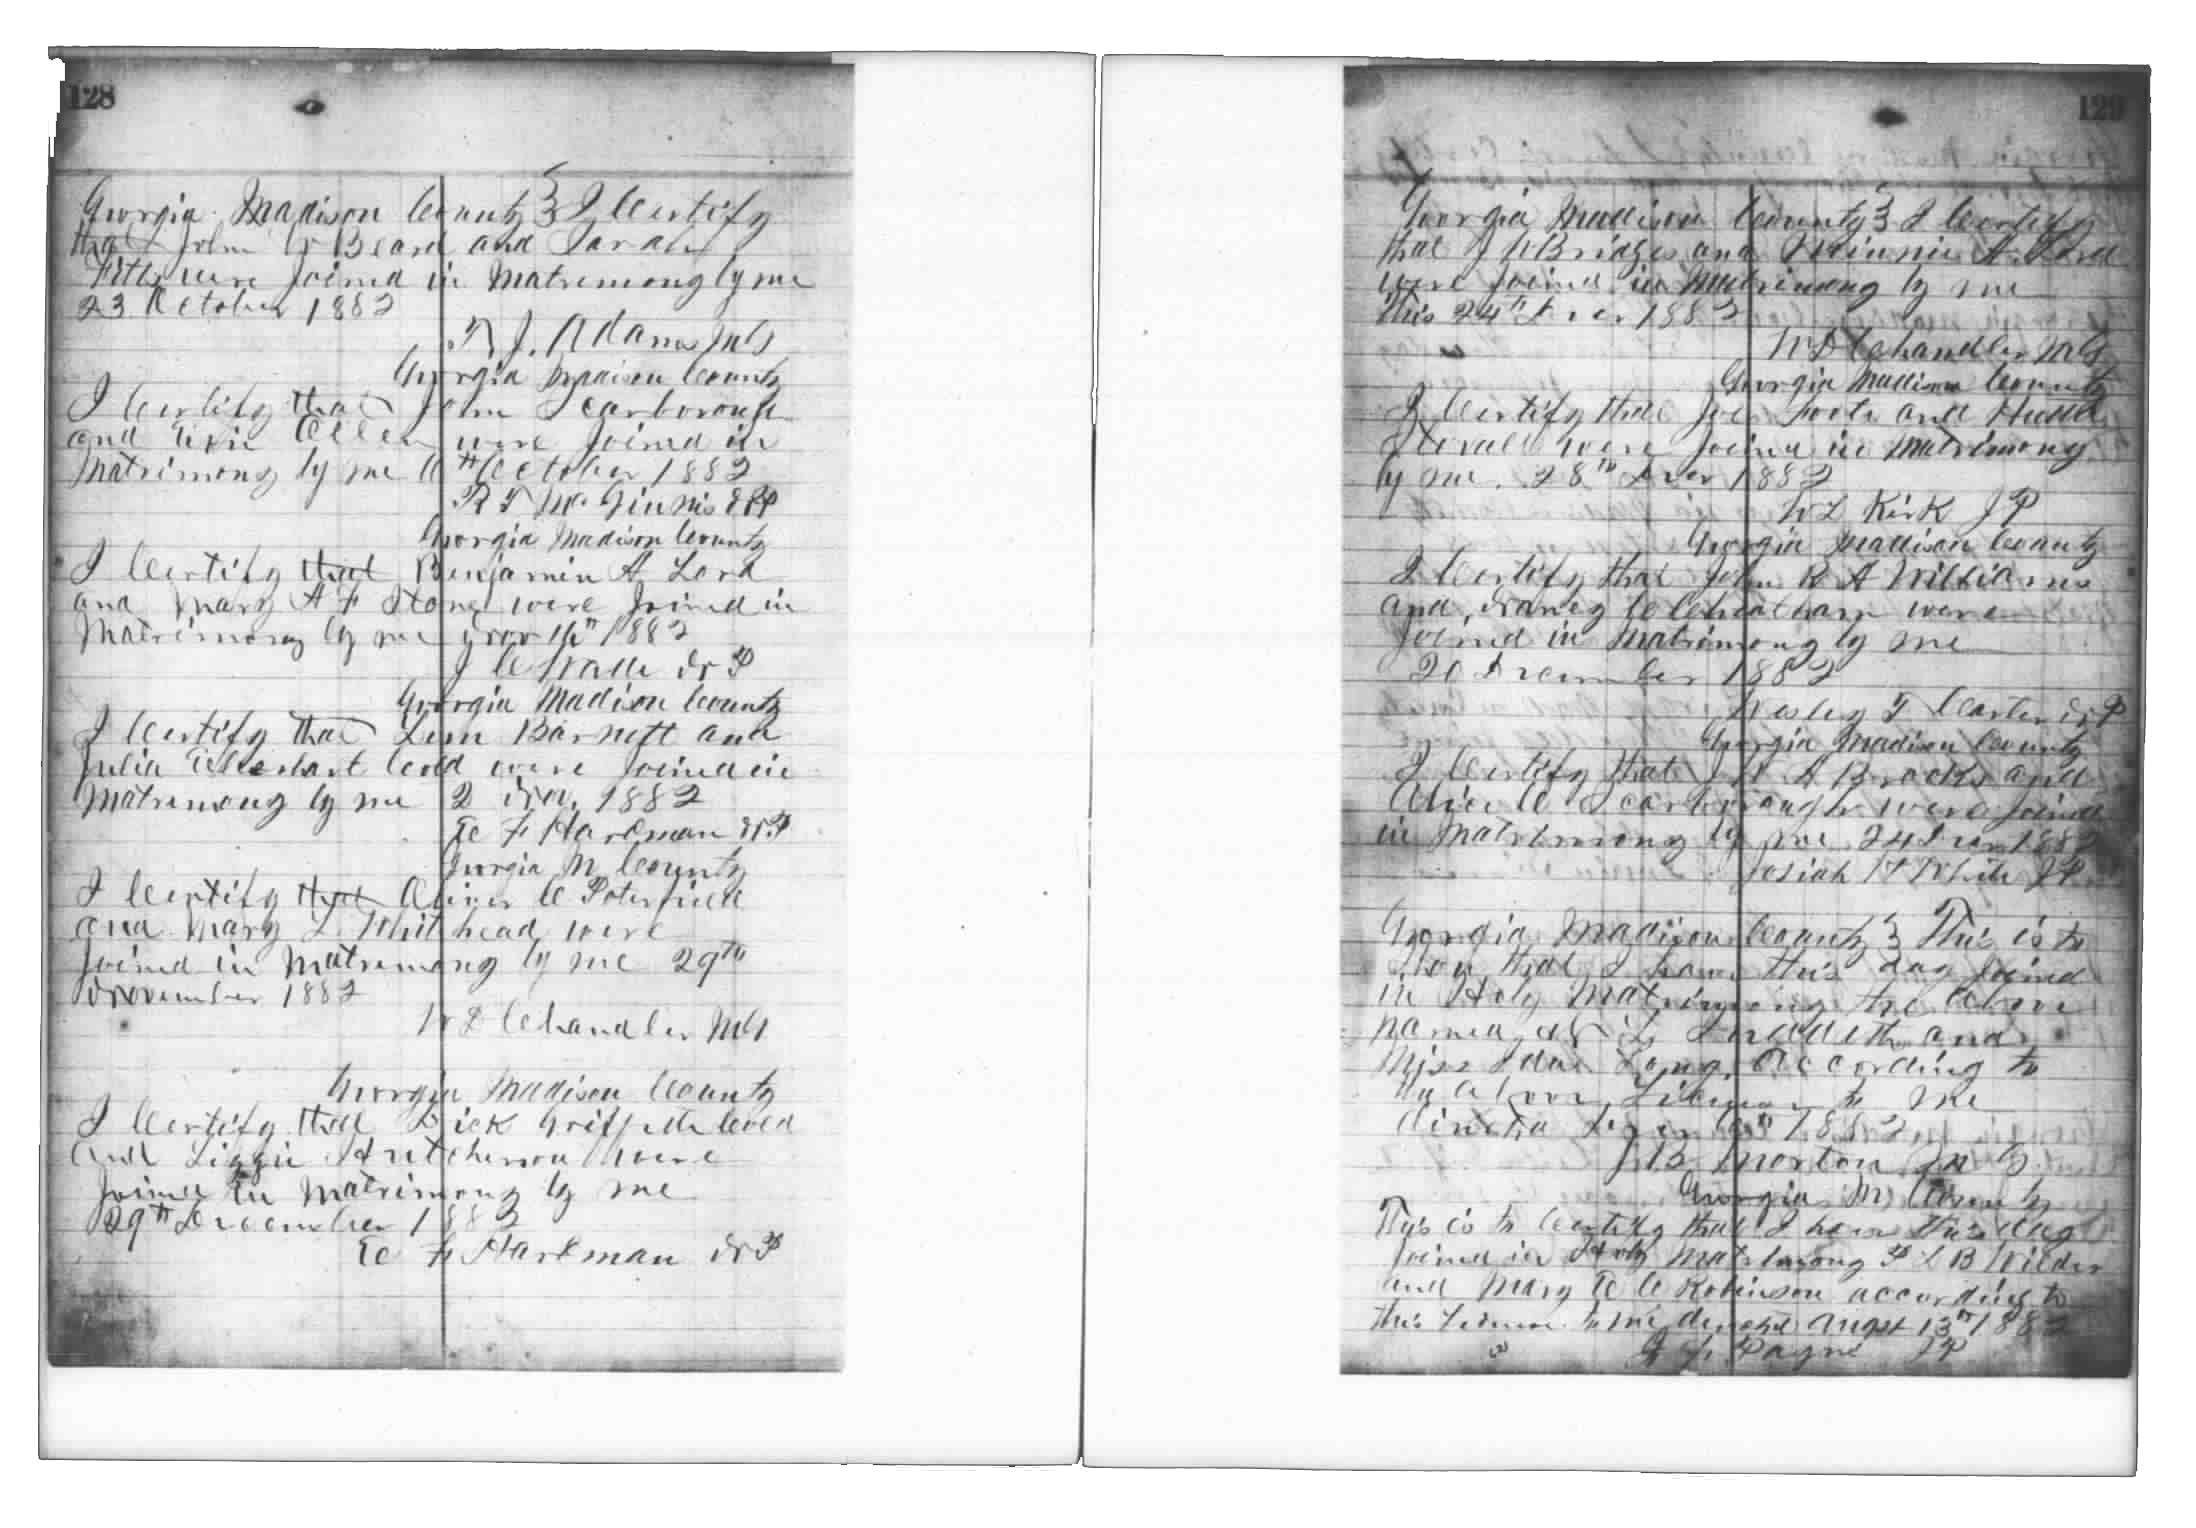 128
Georgia Madison County } I Certify
that John W Beard and Sarah
Fitts were Joined in Matremony by me
23 October 1882
T. J. Adams MG
Georgia Madison County
I Certify that John Scarborough
and Evie Allen were Joined in
Matrimony by me October 1882
R T McGinnis NP
Georgia Madison County
I Certify that Benjamin A Lord
and Mary A F Stone were Joined in
Matrimony by me Nov 1882
J C Wade NP
Georgia Madison County
I Certify that Lum Barnett and
Julia Eberhart Cold were Joined in
Matremony by me 2 Nov. 1882
E F Hardman NP
Georgia M County
I Certify that Oliver C Poterfield
and Mary L Whithead were
Joined in Matremony by me 29th
November 1882
W D Chandler MG
Georgia Madison County
I Certify that Dick Griffeth Cold
and Lizzie Hutcherson were
Joined in Matrimony by me
29th December 1882
E F Hardman NP
129
Georgia Madison County } I Certify
that J W Bridges and Winnie A. Lord
were Joined in Matrimony by me
this 24th Decr 1882
W D Chandler MG
Georgia Madison County
I Certify that Joe and
Stovall were Joined in Matrimony
by me. 28th Decr 1882
W L Kirk JP
Georgia Madison County
I Certify that John R A Williams
and Nancy C Cheatham were
Joined in Matrimony by me
20 December 1882
Wesley T Carter NP
Georgia Madison County
I Certify that J W A Brooks and
Alice C Scarborough were Joined
in Matremony by me 24 Decr 1882
Josiah H White JP
Georgia Madison County } This is to
that I have this day Joined
in Holy Matrimony the above
named and
Miss Ida Long, According to
the above License to me
Directed Decr 1882
J B Morton
Georgia M County
This is to Certify that I have this day
Joined in Holy Matrimony P L B Wilder
and Mary E C Robinson according to
this License to me directed 13th 1882
Payne JP